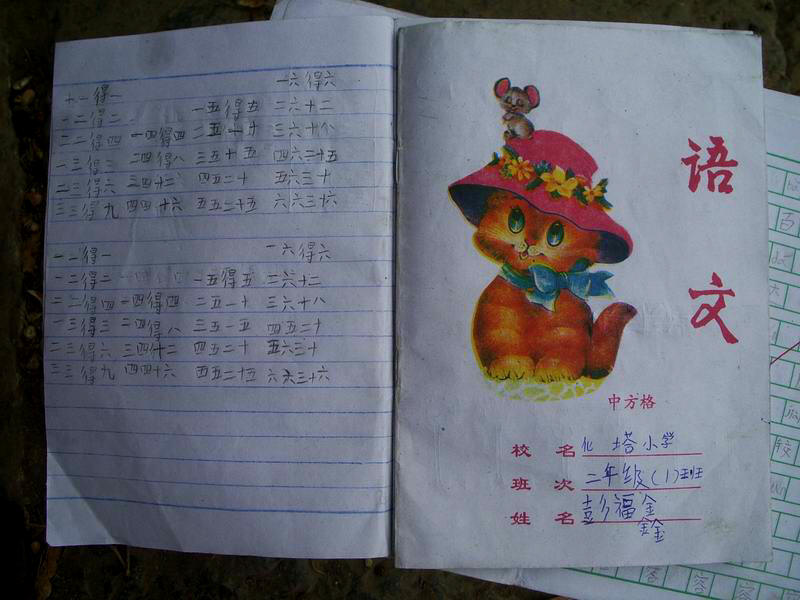 一六得六
十一得一
一二得二 一五得五 二六十二
二二得四 一四得四 二五一十 三六十八
一三得三 二四得八 三五十五 四六二十五
二三得六 三四十二 四五二十 五六三十
三三得九 四四十六 五五二十五 六六三十六
一二得一 一六得六
一二得二 一五得五 二六十二
二二得四 一四得四 二五一十 三六十八
一三得三 二四得八 三五一五 四五二十
二三得六 三四什二 四五二十 五六三十
三三得九 四四十六 五五二十五 六六三十六
语
文
中方格
校名 化塔小学
班次 二年级(1)班
姓名 彭福金
鑫